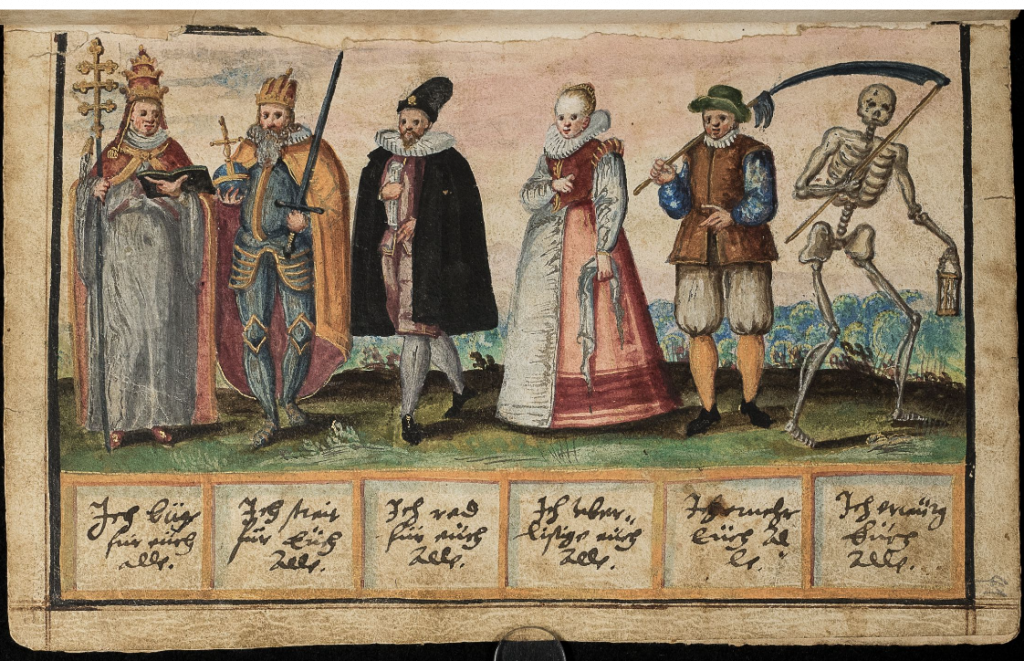 Ich
für euch
alle.
Ich streit
für Euch
Alle.
Ich red
für euch
Alle.
Ich vber=
listige euch
Alle.
Ich ernehr
Euch Al
le.
Ich erwürg
Euch
Alle.